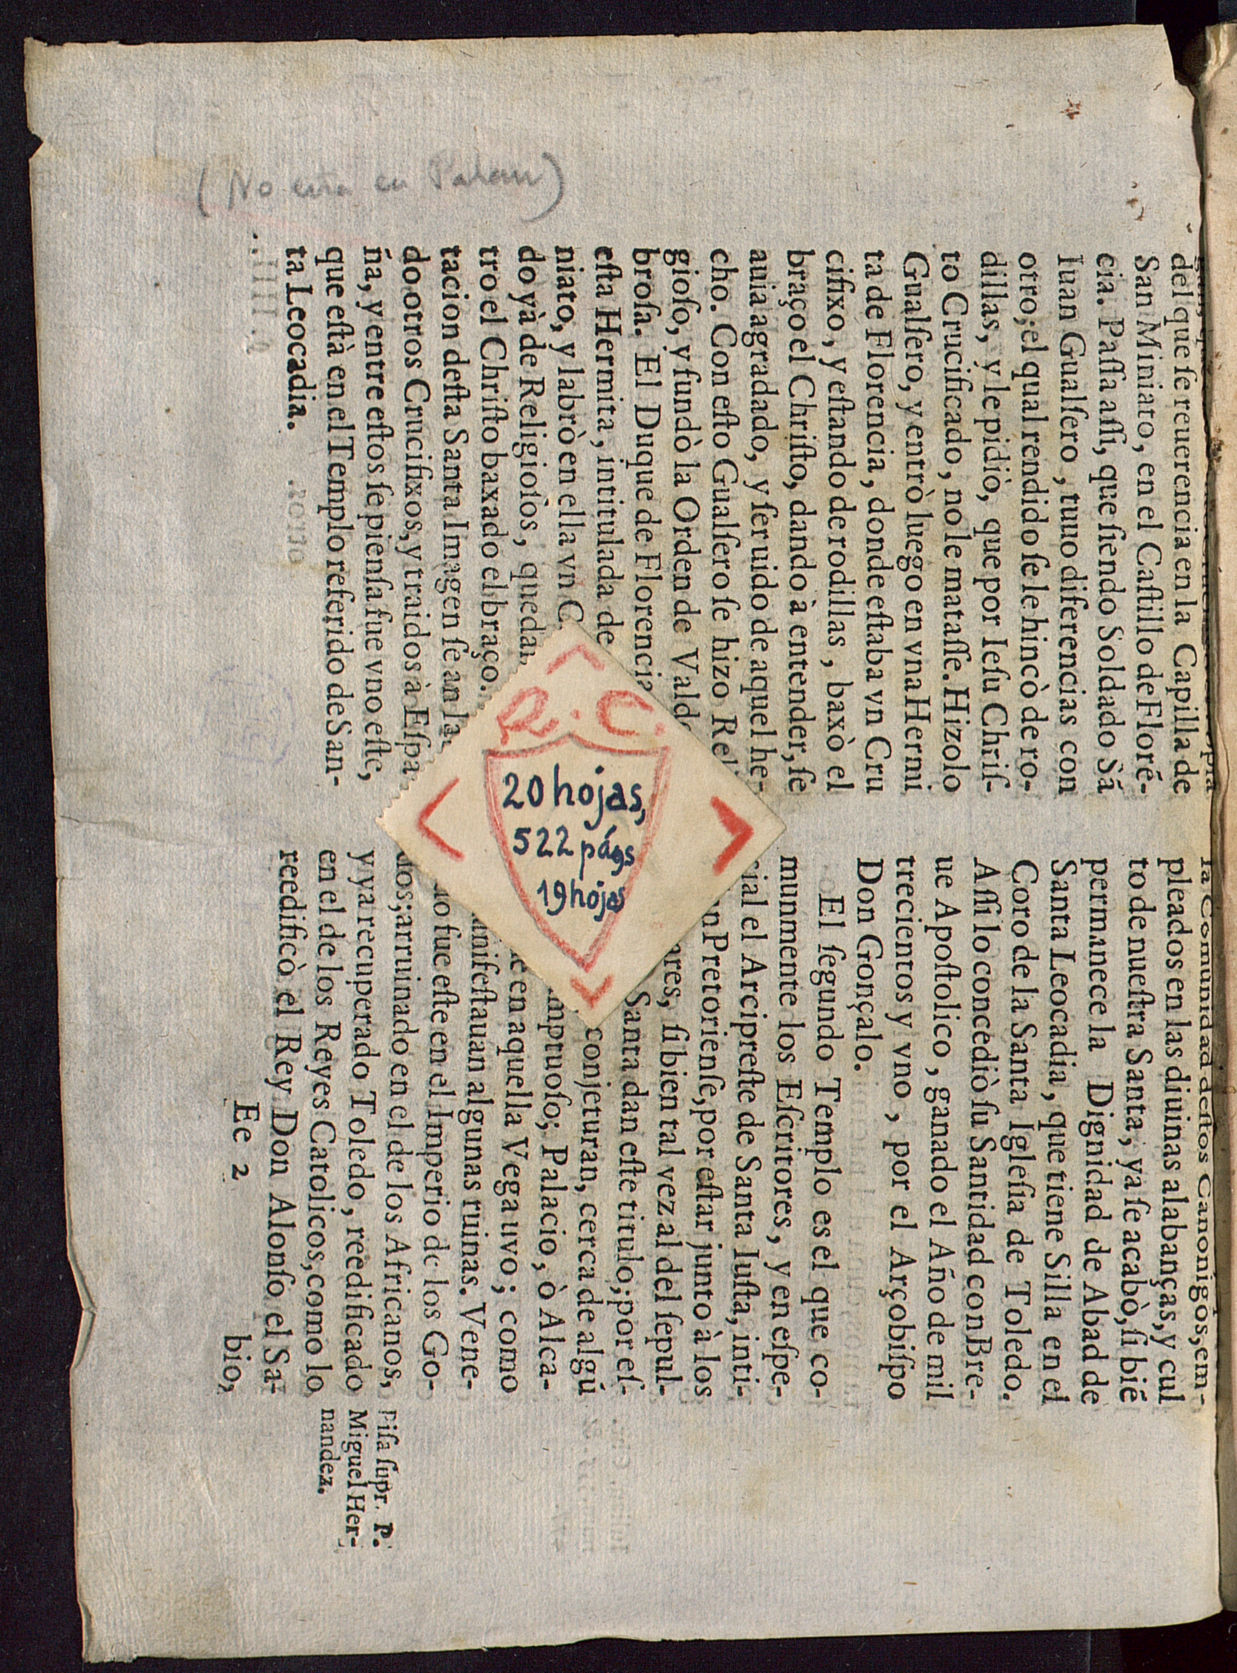 (No esta en Palau)
del que ſe reuerencia en la Capilla de
San Miniato, en el Caſtillo de Florẽ-
cia. Paſſa aſſi, que ſiendo Soldado Sã
Iuan Gualfero, tuuo diferencias con
otro; el qual rendido ſe le hincò de ro-
dillas, y le pidiò, que por Ieſu Chriſ-
to Crucificado, no le mataſſe. Hizolo
Gualfero, y entrò luego en vna Hermi
ta de Florencia, donde eſtaba vn Cru
cifixo, y eſtando de rodillas, baxò el
braço el Chriſto, dando à entender, ſe
auia agradado, y ſeruido de aquel he-
cho. Con eſto Gualfero ſe hizo
gioſo, y fundò la Orden de
broſa. El Duque de Florencia
eſta Hermita, intitulada de
niato, y labrò en ella vn
do yà de Religioſos,
tro el Chriſto baxado el braço.
tacion deſta Santa Imagen ſe an
do otros Crucifixos, y traidos à Eſpa
ña, y entre eſtos ſe pienſa fue vno eſte,
que eſtà en el Templo referido de San-
ta Leocadia.
la Comunidad deſtos Canonigos, em-
pleados en las diuinas alabanças, y cul
to de nueſtra Santa, ya ſe acabò, ſi biẽ
permanece la Dignidad de Abad de
Santa Leocadia, que tiene Silla en el
Coro de la Santa Igleſia de Toledo.
Aſſi lo concediò ſu Santidad con Bre-
ue Apoſtolico, ganado el Año de mil
trecientos y vno, por el Arçobiſpo
Don Gonçalo.
El ſegundo Templo es el que co-
munmente los Eſcritores, y en eſpe-
cial el Arcipreſte de Santa Iuſta, inti-
Pretorienſe, por eſtar junto à los
ſi bien tal vez al del ſepul-
Santa dan eſte titulo; por eſ-
conjeturan, cerca de algũ
Palacio, ò Alca-
en aquella Vega uvo; como
algunas ruinas. Vene-
fue eſte en el Imperio de los Go-
arruinado en el de los Africanos,
y ya recuperado Toledo, reedificado
en el de los Reyes Catolicos, como lo
reedificò el Rey Don Alonſo el Sa-
Ee 2
bio,
Piſa ſupr. P.
Miguel Her-
nandez.
Q. C.
20 hojas,
522 págs
19 hojas